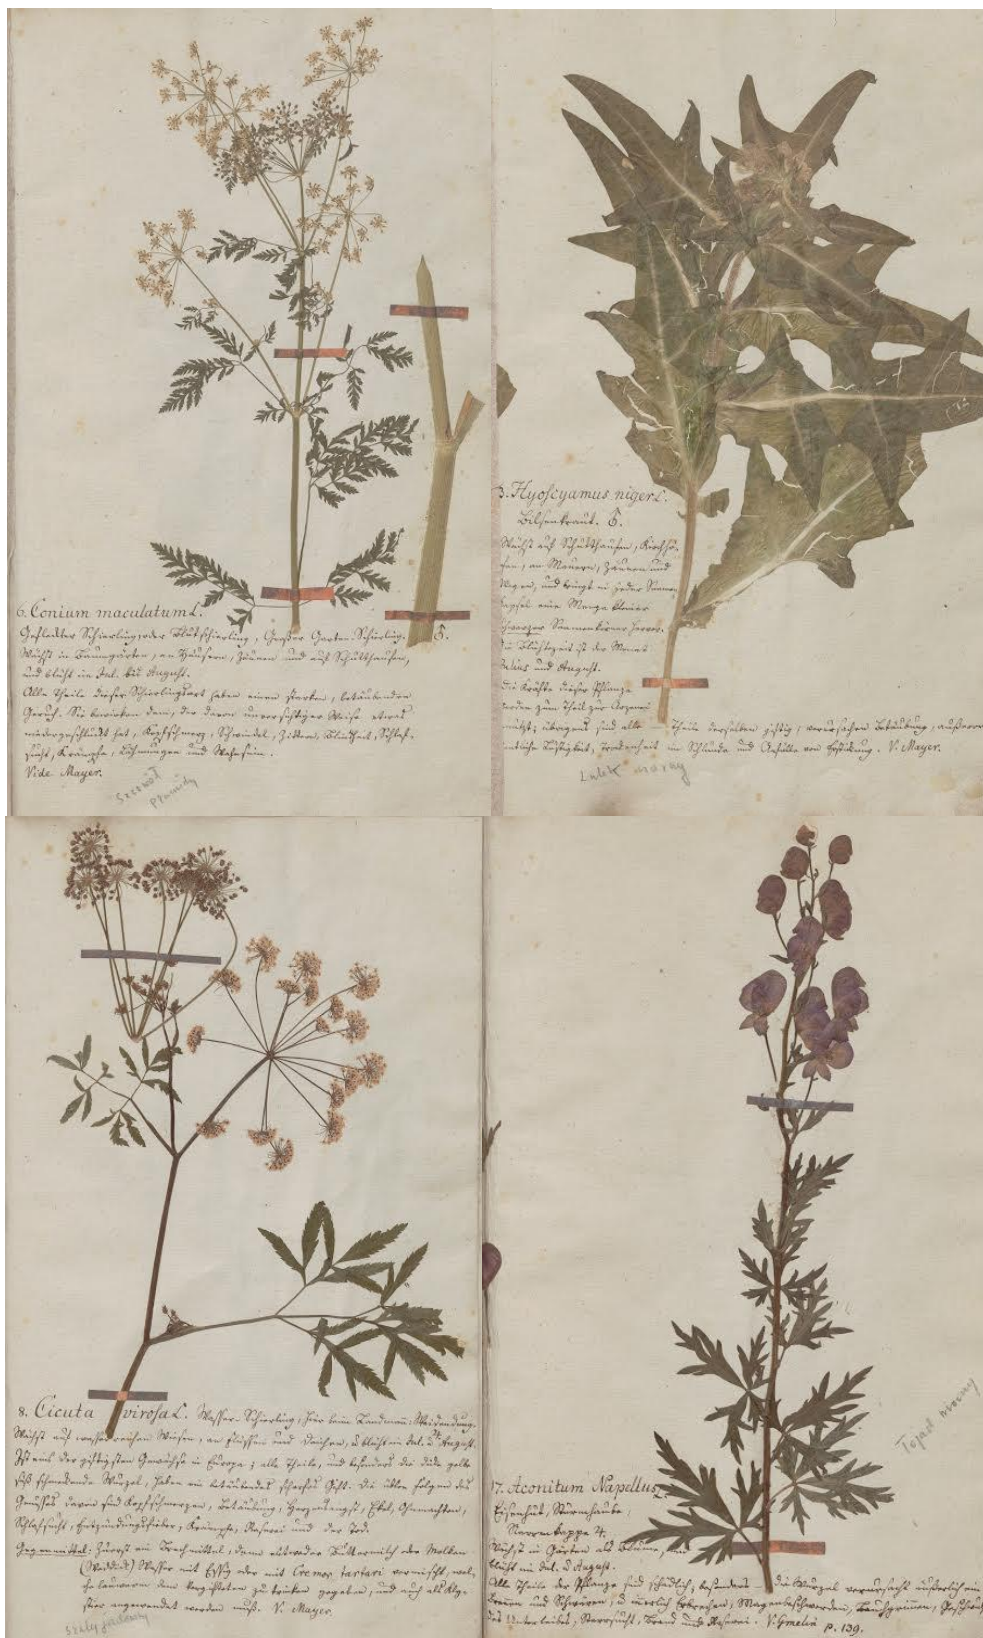 6. Conium maculatum L.
Gefleckter Schierling, oder Blutschierling, Großer Garten-Schierling. ♂.
Wächst in Baumgärten, an Häusern, Zäunen und auf Schutthaufen,
und blüht im Jul. bis August.
Alle Theile dieser Schierlingsart haben einen starken, betäubenden
Geruch. Sie bewirken dem, der davon unvorsichtiger Weise etwas
niedergeschluckt hat, Kopfschmerz, Schwindel, Zittern, Blindheit, Schlaf-
sucht, Krämpfe, Lähmungen und Wahnsinn.
Vide Mayer.
Szczwół
plamisty
Hyosciamus niger L.
Bilsenkraut. ♂.
Wächst auf Schutthaufen, Kirchhö-
fen, an Mauern, Zäunen und
Wegen, und bringt in jeder Samen-
kapsel eine Menge kleiner
schwarzer Samenkörner hervor.
Blühtezeit ist der Monat
Julius und August.
die Kräfte dieser Pflanze
werden zum Theil zur Arzenei
übrigens sind alle Theile derselben giftig, verursachen Betäubung, außeror-
Trockenheit im Schlunde und Anfälle von Erstickung. V. Mayer.
Lulek czarny
8. Cicuta virosa L. Wasser-Schierling, hier beim Landmann:
Wächst auf wasserreichen Wiesen, an Flüssen und Teichen, u blüht im Jul. u August.
Ist eins der giftigsten Gewächse in Europa; alle Theile, und besonders die dicke gelbe
süß schmeckende Wurzel, haben ein betäubendes scharfes Gift. Die üblen Folgen des
Genusses davon sind Kopfschmerzen, Betäubung, Herzensangst, Ekel, Ohnmachten,
Schlafsucht, Entzündungsfieber, Krämpfe, Raserei und der Tod.
Gegenmittel: Zuerst ein Brechmittel, dann entweder Buttermilch oder Molken
Wasser mit Essig oder mit Cremor tartari vermischt,
dem Vergifteten zu trinken gegeben, und auch als Kly-
stier angewendet werden muß. V. Mayer.
szalej jadowity
17. Aconitum Napellus L.
Eisenhut, Sturmhaube,
Narrenkappe ♃.
Wächst in Gärten als Blume, und
blüht im Jul. u August.
Alle Theile der Pflanze sind schädlich, besonders die Wurzel verursacht äußerlich ein
Brennen und Schwüren, u innerlich Erbrechen, Magenbeschwerden, Bauchgrimmen,
des Unterleibes, Starrsucht, Brand und Raserei. V. Gmelin p. 139.
Tojad mocny